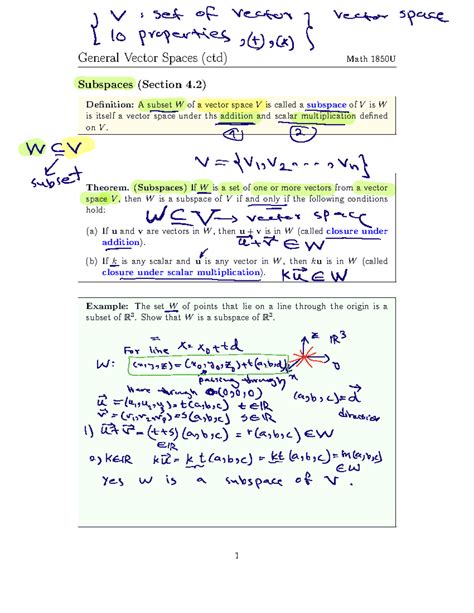 { V : set of vector } vector space
10 properties, (+), (x)
General Vector Spaces (ctd) Math 1850U
Subspaces (Section 4.2)
Definition: A subset W of a vector space V is called a subspace of V is W
is itself a vector space under ths addition and scalar multiplication defined
on V.
① ②
W ⊆ V
subset
V = {V₁, V₂ ..., Vₙ}
Theorem. (Subspaces) If W is a set of one or more vectors from a vector
space V, then W is a subspace of V if and only if the following conditions
hold:
W ⊆ V → vector space
(a) If u and v are vectors in W, then u + v is in W (called closure under
addition). u⃗ + v⃗ ∈ W
(b) If k is any scalar and u is any vector in W, then ku is in W (called
closure under scalar multiplication). ku⃗ ∈ W
Example: The set W of points that lie on a line through the origin is a
subset of ℝ². Show that W is a subspace of ℝ².
For line x = x₀ + td
z ℝ³
W: (x,y,z) = (x₀,y₀,z₀) + t(a,b,c)
passing through
Here through (0,0,0) (a,b,c) = d⃗
direction
t(a,b,c) t∈ℝ
s(a,b,c) s∈ℝ
1) u⃗ + v⃗ = (t+s)(a,b,c) = r(a,b,c) ∈ W
∈ℝ
k∈ℝ ku⃗ = k t(a,b,c) = kt(a,b,c) = m(a,b,c)
∈ W
Yes W is a subspace of V.
1